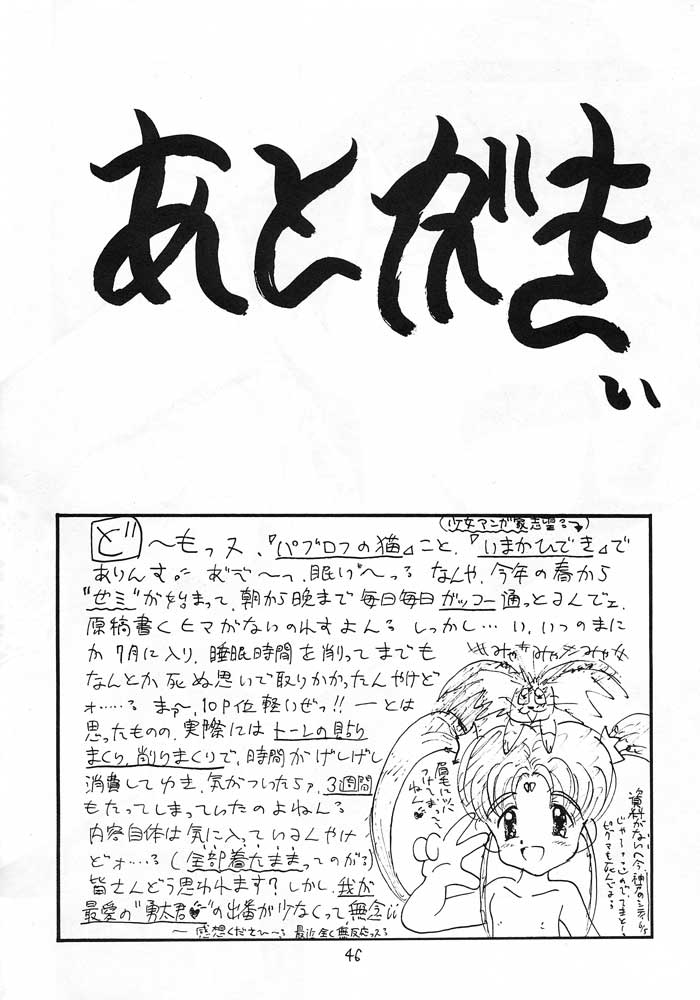 あとがき
い
(少女マンガ家志望る→)
ど〜もっヌ、『パブロフの猫』こと、『いまかひでき』で
ありんす。 おで〜っ、眠い〜っる なんや、今年の春から
"ゼミ"が始まって、朝から晩まで毎日毎日ガッコー通っとるんでェ、
原稿書くヒマがないのれすよんる しっかし…い、いつのまに
か7月に入り、睡眠時間を削ってまでも
なんとか死ぬ思いで取りかかったんやけど
ォ……る まぁ〜、10P位軽いぜっ!! ーとは
思ったものの、実際にはトーンの貼り
まくり、削りまくりで、時間がげしげし
消費してゆき、気がついたらァ、3週間
もたってしまっていたのよねんる
内容自体は気に入っているんやけ
どォ…る(全部着たままってのがる)
皆さんどう思われます?しかし、我が
最愛の"勇太君"の出番が少なくって、無念
〜感想くださひ〜る 最近全く無反応っスる
みゃみゃみゃみゃ
眉毛に
つけてまって
ねん
資料がない
46